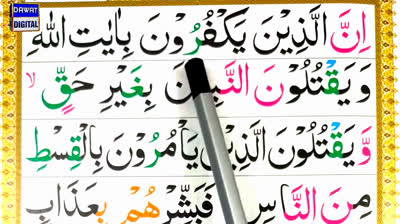 DAWAT
DIGITAL
اِنَّ الَّذِیْنَ یَكْفُرُوْنَ بِاٰیٰتِ اللّٰهِ
وَ یَقْتُلُوْنَ النَّبِیّٖنَ بِغَیْرِ حَقٍّ ۙ
وَّ یَقْتُلُوْنَ الَّذِیْنَ یَاْمُرُوْنَ بِالْقِسْطِ
مِنَ النَّاسِ فَبَشِّرْهُمْ بِعَذَابٍ